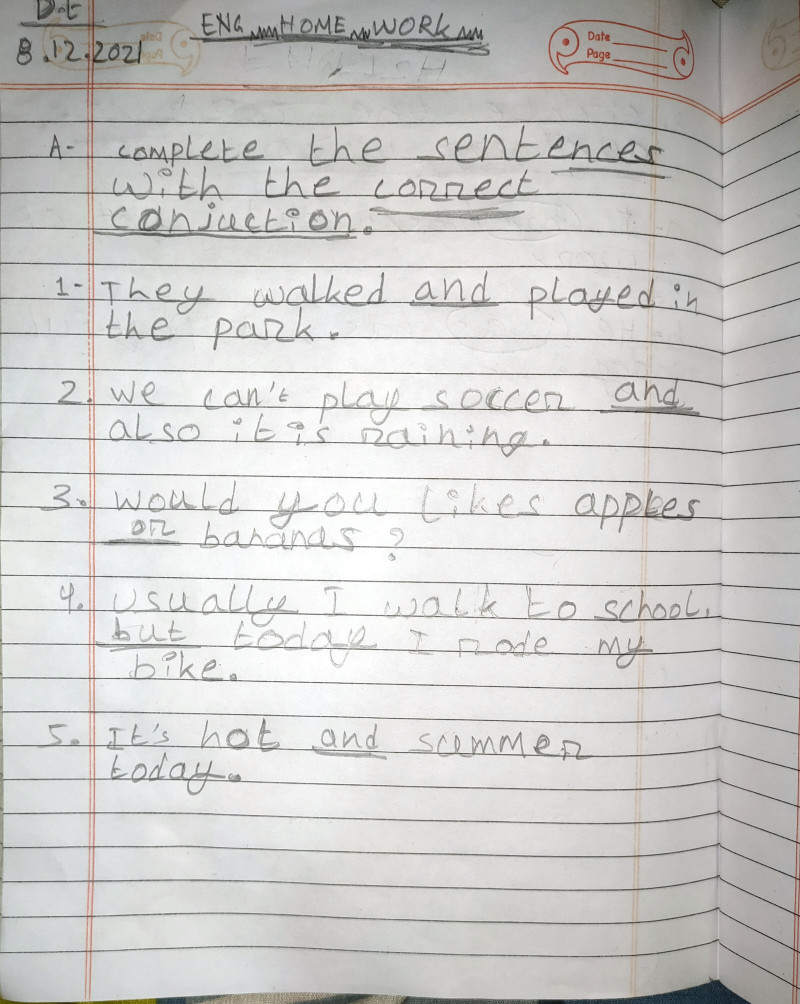 Dat
8.12.2021
ENG HOME WORK
Date
Page
A- complete the sentences
with the correct
conjuction.
1- They walked and played in
the park.
2. We can't play soccer and
also it is raining.
3. Would you likes apples
or bananas?
4. Usually I walk to school,
but today I rode my
bike.
5. It's hot and summer
today.